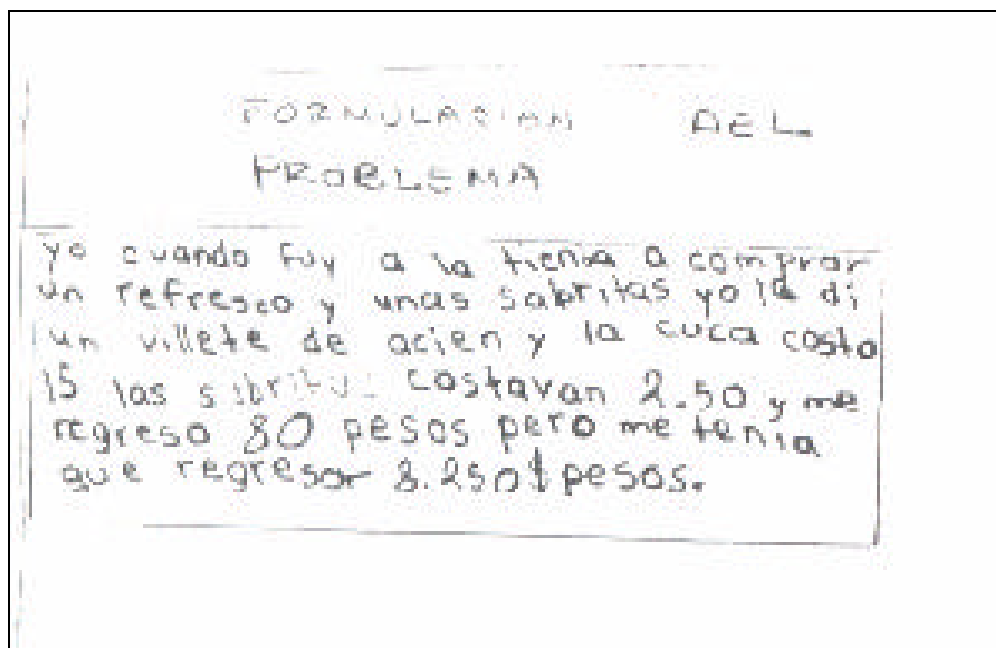 FORMULASIAN DEL
PROBLEMA
yo cuando fuy a la tienia a comprar
un refresco y unas sabritas yo le di
un villete de acien y la cuca costo
15 las sabritas costavan 2.50 y me
regreso 80 pesos pero me tenia
que regresar 8.250$ pesos.